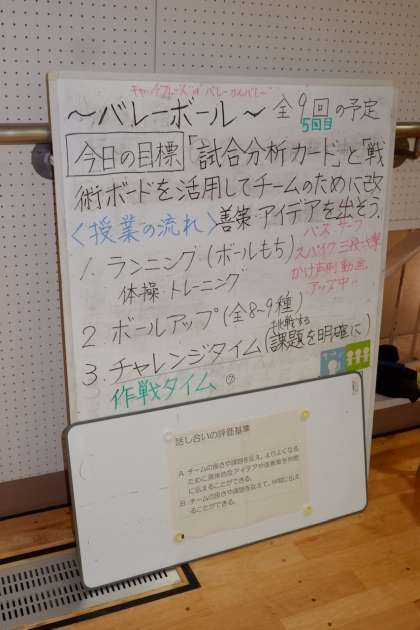 ～バレーボール～ 全9回の予定
5回目
今日の目標 「試合分析カード」と「戦
術ボードを活用してチームのために改
善策・アイデアを出そう。
＜授業の流れ＞
パス サーブ
スパイク 三段攻撃
かけ声例 動画
アップ中!!
1. ランニング(ボールもち)
体操・トレーニング
2 ボールアップ(全8〜9種)
挑戦する
3. チャレンジタイム(課題を明確に)
作戦タイム
話し合いの評価基準
A チームの良さや課題を伝え、よりよくなる
ために具体的なアイデアや改善策を仲間
に伝えることができる。
B チームの良さや課題を伝えて、仲間に伝え
ることができる。